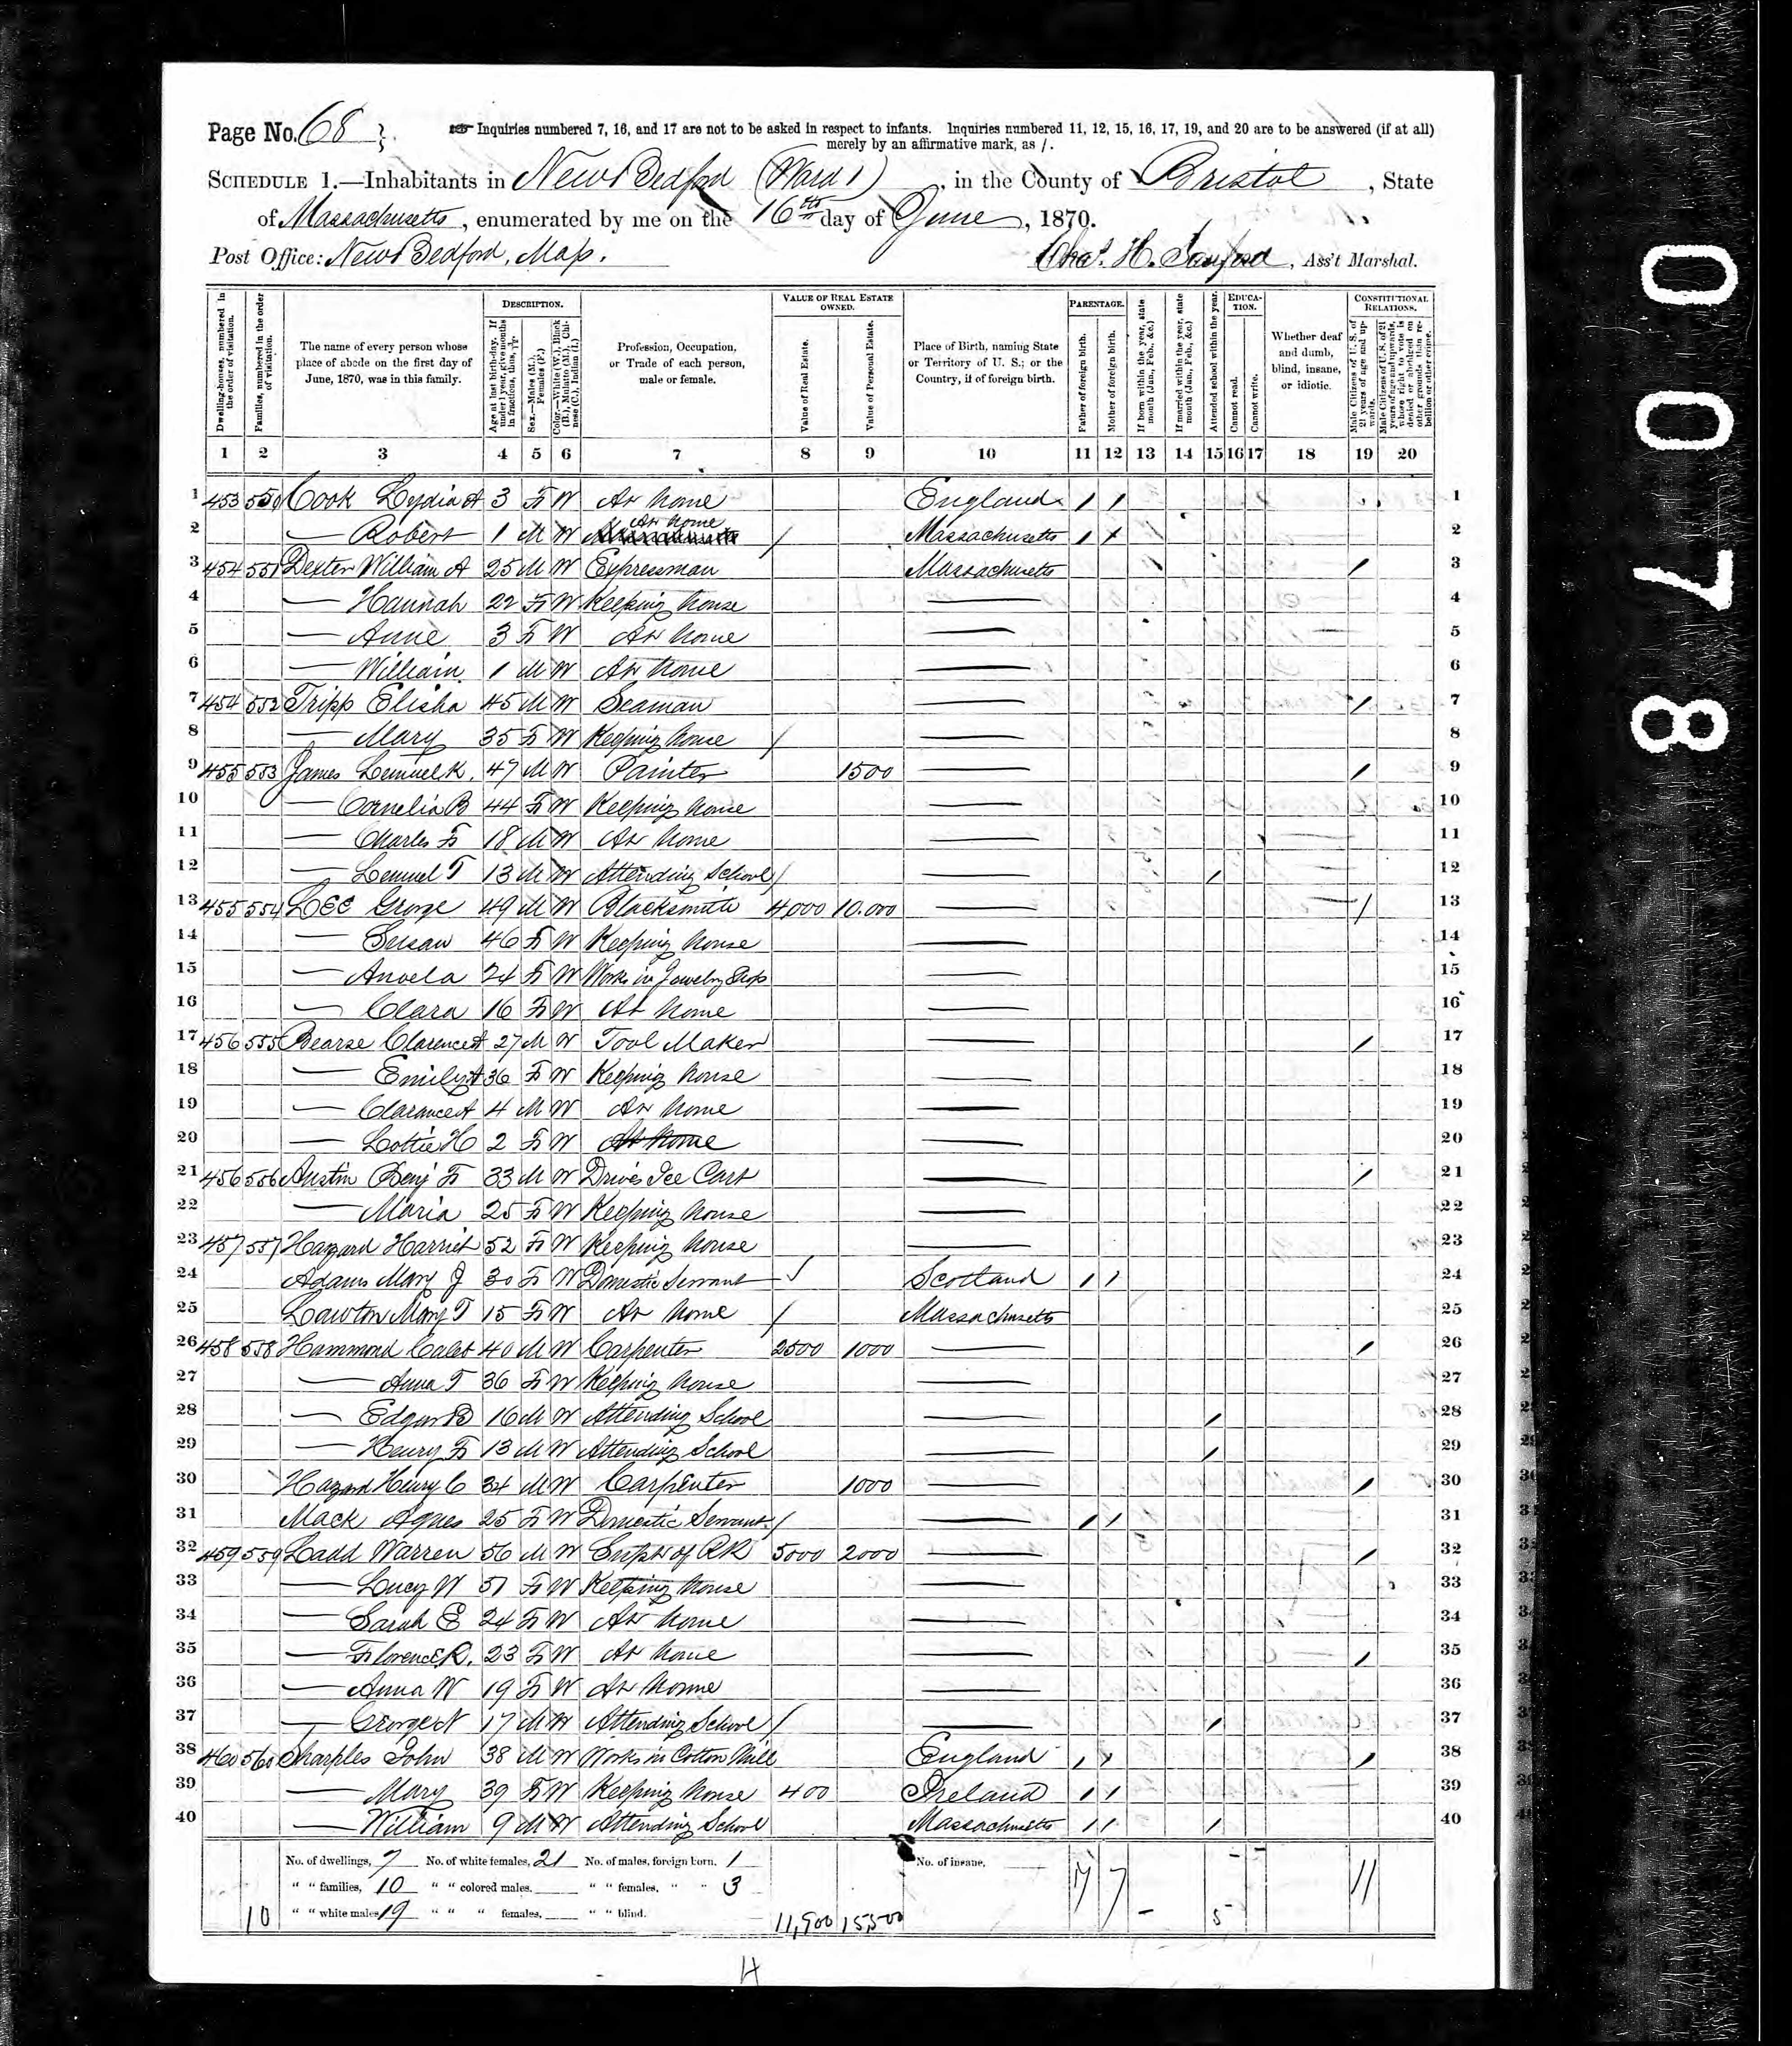 Page No. 68
Inquiries numbered 7, 16, and 17 are not to be asked in respect to infants. Inquiries numbered 11, 12, 15, 16, 17, 19, and 20 are to be answered (if at all)
merely by an affirmative mark, as /.
SCHEDULE 1.—Inhabitants in New Bedford (Ward 1), in the County of Bristol, State
of Massachusetts, enumerated by me on the 16th day of June, 1870.
Post Office: New Bedford, Mass. Chas. H. Sanford, Ass't Marshal.
Dwelling-houses, numbered in the order of visitation.
Families, numbered in the order of visitation.
The name of every person whose place of abode on the first day of June, 1870, was in this family.
DESCRIPTION.
Age at last birth-day. If under 1 year, give months in fractions, thus,
Sex.—Males (M.), Females (F.)
Color.—White (W.), Black (B.), Mulatto (M.), Chinese (C.), Indian (I.)
Profession, Occupation, or Trade of each person, male or female.
VALUE OF REAL ESTATE OWNED.
Value of Real Estate.
Value of Personal Estate.
Place of Birth, naming State or Territory of U. S.; or the Country, if of foreign birth.
PARENTAGE.
Father of foreign birth.
Mother of foreign birth.
If born within the year, state month (Jan., Feb., &c.)
If married within the year, state month (Jan., Feb., &c.)
Attended school within the year.
EDUCATION.
Cannot read.
Cannot write.
Whether deaf and dumb, blind, insane, or idiotic.
CONSTITUTIONAL RELATIONS.
Male Citizens of U. S. of 21 years of age and upwards.
Male Citizens of U. S. of 21 years of age and upwards, whose right to vote is denied or abridged on other grounds than rebellion or other crime.
1 2 3 4 5 6 7 8 9 10 11 12 13 14 15 16 17 18 19 20
1 453 550 Cook Lydia A 3 F W At home England / / 1
2 — Robert 1 M W At home / Massachusetts / / 2
3 454 551 Dexter William A 25 M W Expressman Massachusetts / 3
4 — Hannah 22 F W Keeping house — 4
5 — Anne 3 F W At home — 5
6 — William 1 M W At home — 6
7 454 552 Tripp Elisha 45 M W Seaman — / 7
8 — Mary 35 F W Keeping house / — 8
9 455 553 James Lemuel K. 47 M W Painter 1500 — / 9
10 — Cornelia B 44 F W Keeping house — 10
11 — Charles F 18 M W At home — 11
12 — Lemuel T 13 M W Attending School / — / 12
13 455 554 Lee George 49 M W Blacksmith 4000 10.000 — / 13
14 — Susan 46 F W Keeping house — 14
15 — 24 F W Works in Jewelry Shop — 15
16 — Clara 16 F W At home — 16
17 456 555 Bearse Clarence A 27 M W Tool Maker — / 17
18 — Emily A 36 F W Keeping house — 18
19 — Clarance A 4 M W At home — 19
20 — Lottie H 2 F W At home — 20
21 456 556 Austin Benj F 33 M W Drives Ice Cart — / 21
22 — Maria 25 F W Keeping house — 22
23 457 557 Hazard Harriet 52 F W Keeping house — 23
24 Adams Mary J 30 F W Domestic Servant / Scotland / / 24
25 Lawton Mary T 15 F W At home / Massachusetts 25
26 458 558 Hammond Caleb 40 M W Carpenter 2500 1000 — / 26
27 — Anna T 36 F W Keeping house — 27
28 — Edgar B 16 M W Attending School — / 28
29 — Henry F 13 M W Attending School — / 29
30 Hazard Henry C 34 M W Carpenter 1000 — / 30
31 Mack Agnes 25 F W Domestic Servant / — / / 31
32 459 559 Ladd Warren 56 M W Supt of RR 5000 2000 — / 32
33 — Lucy W 51 F W Keeping house — 33
34 — Sarah E 24 F W At home — 34
35 — Florence R. 23 F W At home — / 35
36 — Anna W 19 F W At home — 36
37 — George N 17 M W Attending School / — / 37
38 460 560 Sharples John 38 M W Works in Cotton Mill England / / / 38
39 — Mary 39 F W Keeping house 400 Ireland / / 39
40 — William 9 M W Attending School Massachusetts / / / 40
No. of dwellings, 7 No. of white females, 21 No. of males, foreign born, 1 No. of insane,
" " families, 10 " " colored males, " " females, " " 3
10 " " white males 19 " " " females, " " blind. 11,900 15,500 7 7 - 5 11
H
00078